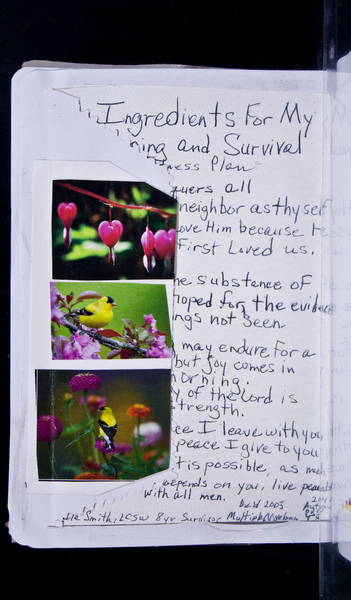 Ingredients For My
ning and Survival
ness Plan
quers all
neighbor as thyself
Love Him because He
First Loved us.
he substance of
hoped for, the evidence
ngs not seen
may endure for a
but joy comes in
morning.
y of the Lord is
trength.
ce I leave with you,
peace I give to you
t is possible, as much
depends on you, live peaceably
with all men.
2005
Smith, LCSW 8 yr Survivor Multiple Myeloma